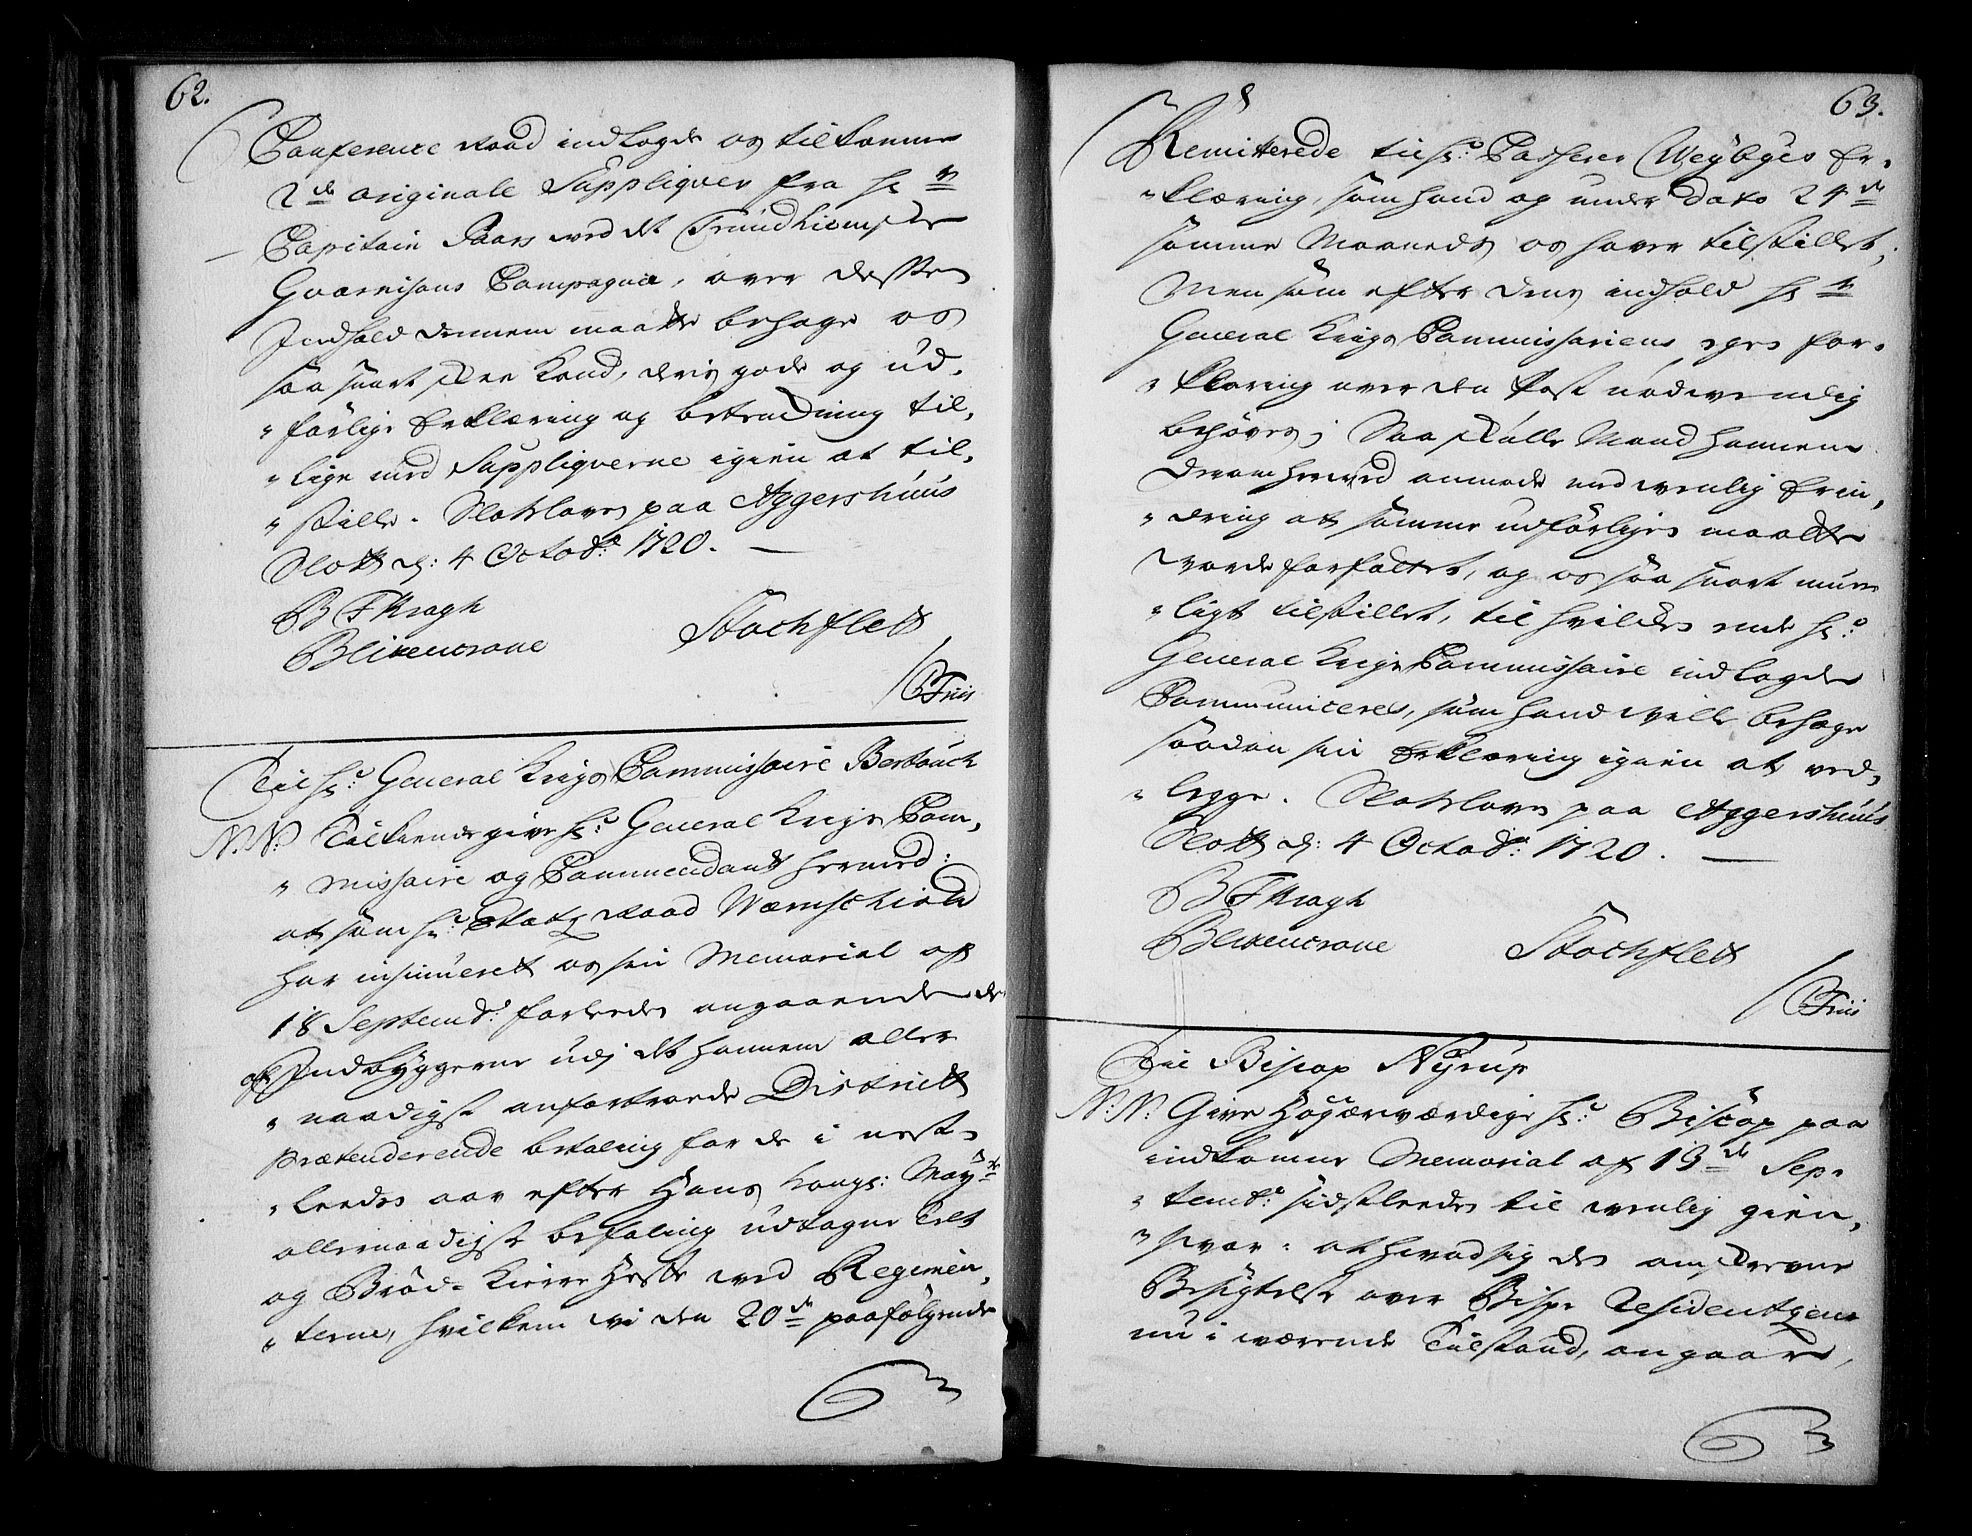 62.
Conference Raad indlagde os tilkomne
2de originale Suppliqver fra Hr
Capitain Paars ved det Trundhiemske
Gvarnisons Compagnie, over dessen
Indhold dennem maatte behage os
saa snart skee kand, deris gode og ud-
„ førlige Erklæring og betenckning til-
„ lige med Suppliqverne igien at til-
„ stille. Slotzloven paa Aggershuus
Slott d: 4 Octobr: 1720.
B F Kragh
Blixencrone Stochfleth
C Friis
Til Hr: General Krigs Commissaire Bertouch
N: N: Tilkiendegive Hr: General Krigs Com-
„ missaire og Commendant hermed:
at som Hr: Etatz Raad Wernschiold
har insinueret os sin Memorial af
18 Septembr: forleden angaaende de
af Indbyggerne udj det hannem aller
„ naadigst anfortroede District
prætenderende betaling for de i nest-
„ leeden aar efter Hans Kongs: Mayts
allernaadigst befaling udtagne Telt
og Brød-Kierre Heste ved Regimen-
„ terne, hvilken vi den 20de paafølgende
63.
Remitterede til Hr: Casserer Weybyes Er-
„ klæring, som hand og under Dato 24de
samme Maaneds os haver tilstillet,
Men som efter dens indhold Hr
General Krigs Commissariens egen for-
„ klaring over den Post nødvendig
behøves; Saa skulle Mand hannem
derom herved anmode med venlig Erin-
„ dring at samme udførligen maatte
vorde forfattet, og os saa snart mue-
„ ligt tilstillet, til hvilken ende Hr:
General Krigs Commissaire indlagde
Communiceres, som hand ville behage
saadan sin Erklæring igien at ved-
„ legge. Slotzloven paa Aggershuus
Slott d: 4 Octobr: 1720.
B F Kragh
Blixencrone Stochfleth
C Friis
Til Biscop Nyrup
N: N: Give Høyærværdige Hr: Biscop paa
indkomne Memorial af 13de Sep-
„ tembr: sidstleeden til venlig gien-
„ svar: at hvad sig den omskrevne
Besigtelse over Bispe Residentzens
nu i værende Tilstand, angaar,